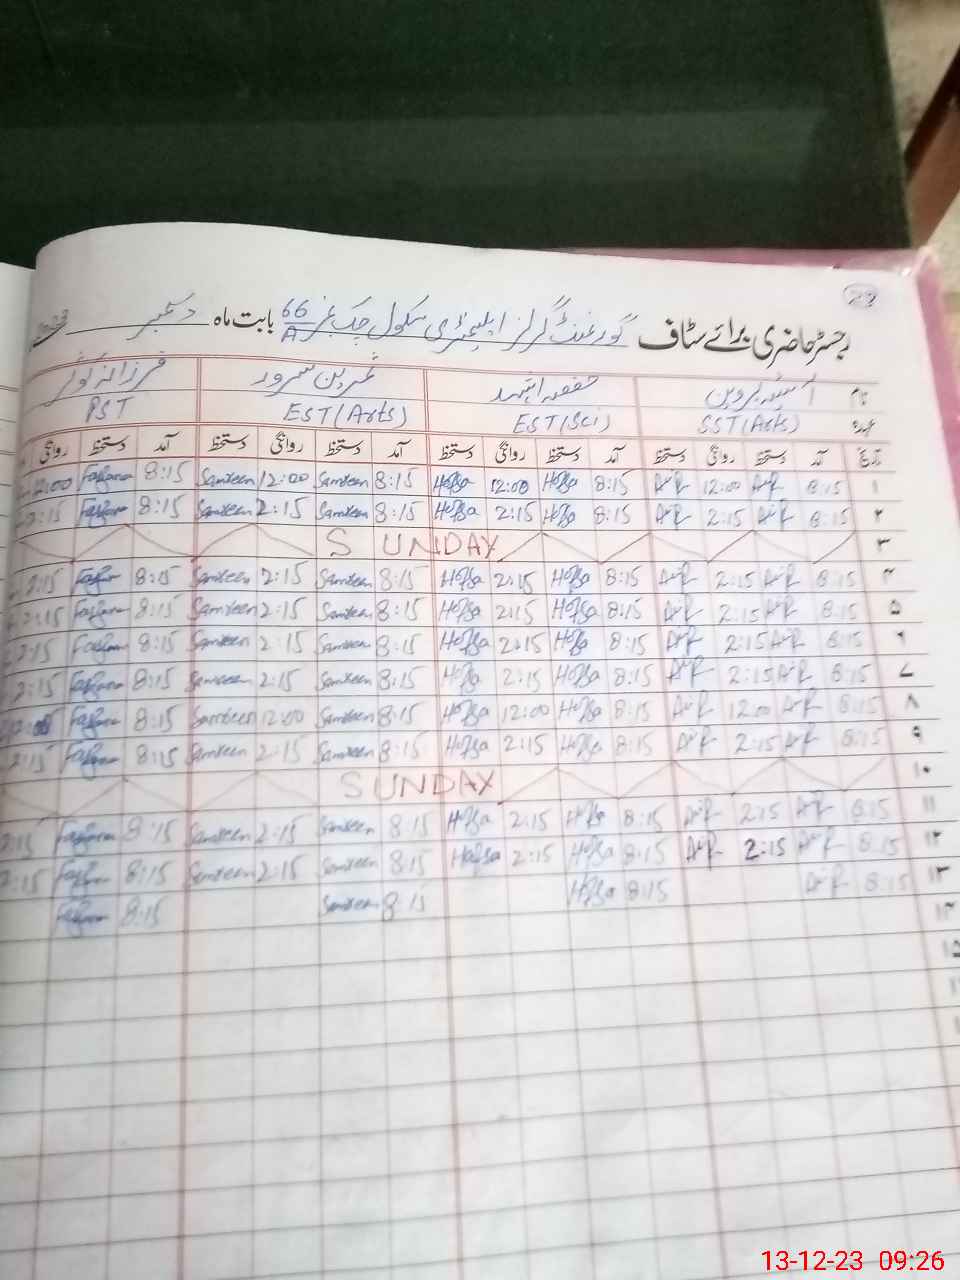 29
رجسٹر حاضری برائے سٹاف گورنمنٹ گرلز ایلیمنٹری سکول چک نمبر 66/A بابت ماہ دسمبر 2023
نام پروین ثمرین سرور فرزانہ کوثر
عہدہ SST (Arts) EST (Sci) EST (Arts) PST
تاریخ آمد دستخط روانگی دستخط آمد دستخط روانگی دستخط آمد دستخط روانگی دستخط آمد دستخط روانگی
۱ 8:15 12:00 8:15 Hafsa 12:00 Hafsa 8:15 Samreen 12:00 Samreen 8:15 Farzana 12:00
۲ 8:15 2:15 8:15 Hafsa 2:15 Hafsa 8:15 Samreen 2:15 Samreen 8:15 Farzana 2:15
۳ SUNDAY
۴ 8:15 2:15 8:15 Hafsa 2:15 Hafsa 8:15 Samreen 2:15 Samreen 8:15 Farzana 2:15
۵ 8:15 2:15 8:15 Hafsa 2:15 Hafsa 8:15 Samreen 2:15 Samreen 8:15 Farzana 2:15
۶ 8:15 2:15 8:15 Hafsa 2:15 Hafsa 8:15 Samreen 2:15 Samreen 8:15 Farzana 2:15
۷ 8:15 2:15 8:15 Hafsa 2:15 Hafsa 8:15 Samreen 2:15 Samreen 8:15 Farzana 2:15
۸ 8:15 12:00 8:15 Hafsa 12:00 Hafsa 8:15 Samreen 12:00 Samreen 8:15 Farzana
۹ 8:15 2:15 8:15 Hafsa 2:15 Hafsa 8:15 Samreen 2:15 Samreen 8:15 Farzana 2:15
۱۰ SUNDAY
۱۱ 8:15 2:15 8:15 Hafsa 2:15 Hafsa 8:15 Samreen 2:15 Samreen 8:15 Farzana 2:15
۱۲ 8:15 2:15 8:15 Hafsa 2:15 Hafsa 8:15 Samreen 2:15 Samreen 8:15 Farzana 2:15
۱۳ 8:15 8:15 Hafsa 8:15 Samreen 8:15 Farzana
۱۴
۱۵
13-12-23 09:26